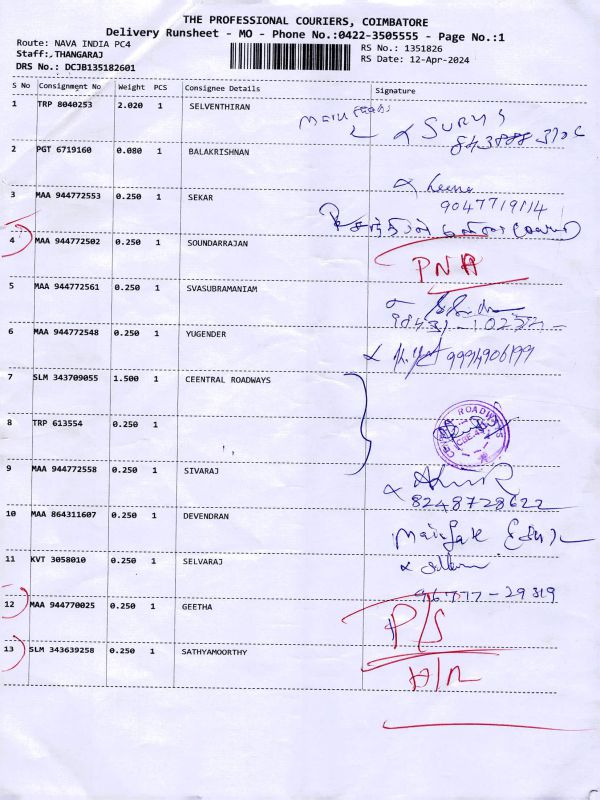 THE PROFESSIONAL COURIERS, COIMBATORE
Delivery Runsheet - MO - Phone No.:0422-3505555 - Page No.:1
Route: NAVA INDIA PC4
RS No.: 1351826
Staff:,THANGARAJ
RS Date: 12-Apr-2024
DRS No.: DCJB135182601
S No Consignment No Weight PCS Consignee Details Signature
1 TRP 8040253 2.020 1 SELVENTHIRAN
SURYS
2 PGT 6719160 0.080 1 BALAKRISHNAN
3 MAA 944772553 0.250 1 SEKAR
4 MAA 944772502 0.250 1 SOUNDARRAJAN
PNA
5 MAA 944772561 0.250 1 SVASUBRAMANIAM
6 MAA 944772548 0.250 1 YUGENDER
9994906199
7 SLM 343709055 1.500 1 CEENTRAL ROADWAYS
8 TRP 613554 0.250 1
ROADWAYS
9 MAA 944772558 0.250 1 SIVARAJ
8248728622
10 MAA 864311607 0.250 1 DEVENDRAN
11 KVT 3058010 0.250 1 SELVARAJ
96777-29319
12 MAA 944770025 0.250 1 GEETHA
P/S
13 SLM 343639258 0.250 1 SATHYAMOORTHY